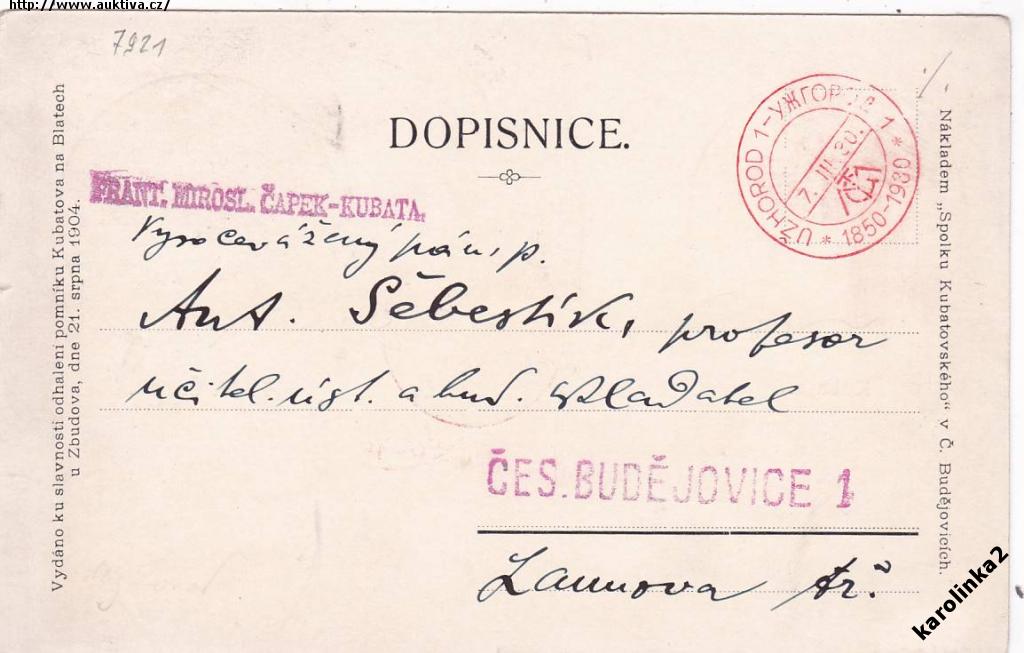 http://www.auktiva.cz/
7921
DOPISNICE.
UŽHOROD 1 - УЖГОРОД 1 * 1850-1930 *
7. III. 30.
FRANT. MIROSL. ČAPEK-KUBATA.
Vysocevážený pán, p.
Ant. Šebestík, profesor
učitel. úst. a hud. skladatel
ČES. BUDĚJOVICE 1
Lannova tř.
Vydáno ku slavnosti odhalení pomníku Kubatova na Blatech
u Zbudova, dne 21. srpna 1904.
Nákladem „Spolku Kubatovského“ v Č. Budějovicích.
karolinka2